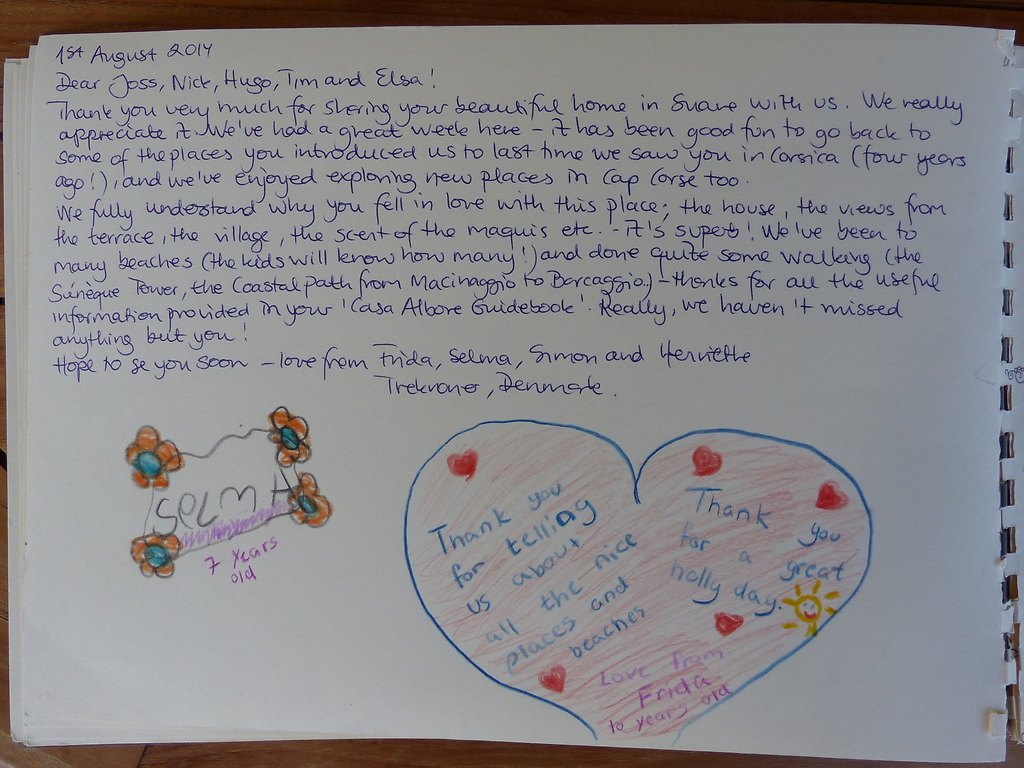 1st August 2014
Dear Joss, Nick, Hugo, Tim and Elsa!
Thank you very much for sharing your beautiful home in Suare with us. We really
appreciate it. We've had a great week here - it has been good fun to go back to
some of the places you introduced us to last time we saw you in Corsica (four years
ago!), and we've enjoyed exploring new places in Cap Corse too.
We fully understand why you fell in love with this place; the house, the views from
the terrace, the village, the scent of the maquis etc. - it's superb! We've been to
many beaches (the kids will know how many!) and done quite some walking (the
Sénèque Tower, the Coastal path from Macinaggio to Barcaggio) - thanks for all the useful
information provided in your 'Casa Albore Guidebook'. Really, we haven't missed
anything but you!
Hope to se you soon - love from Frida, Selma, Simon and Henriette
Trekroner, Denmark.
SELMA
7 years
old
Thank you
for telling
us about
all the nice
places and
beaches
Thank you
for a great
holly day.
Love from
Frida
10 years old